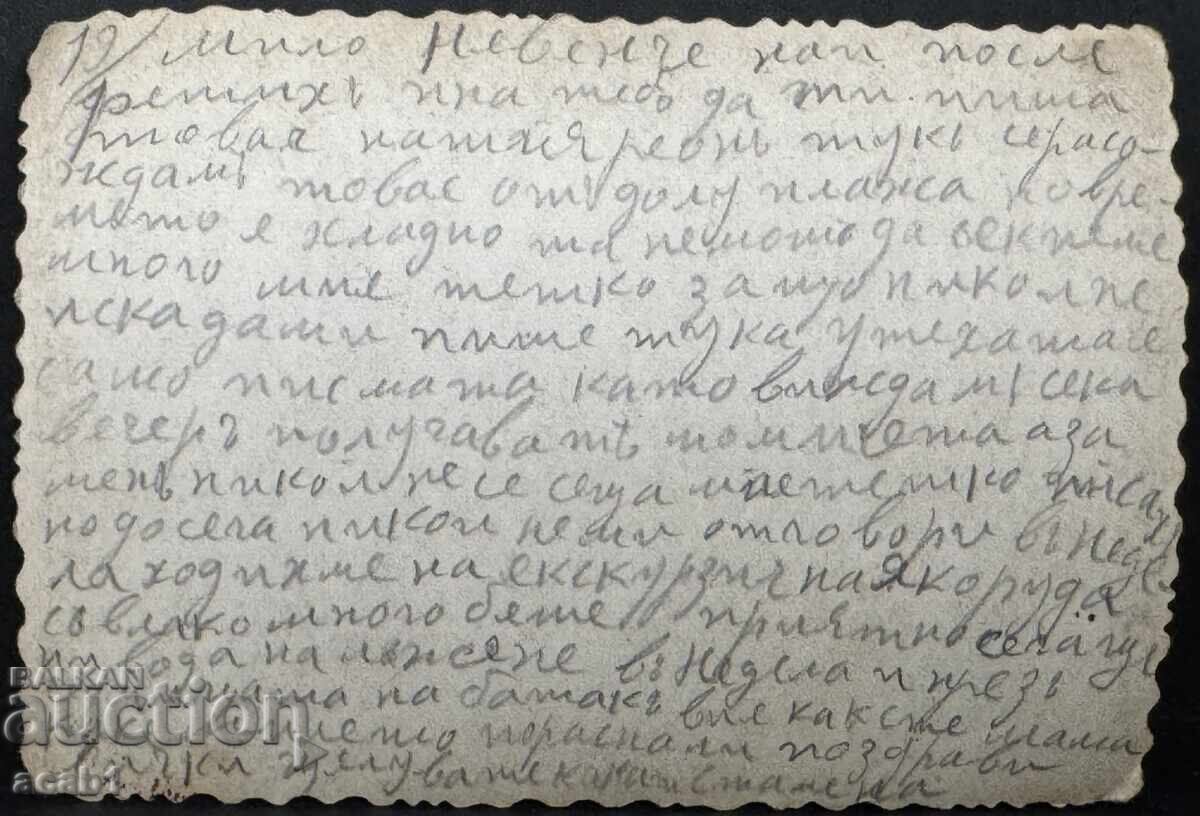 19/ мило Невенче най после
решихъ и на тебъ да ти пиша
товая нашия реонъ тукъ се разо-
ждамъ товае отъ долу плажа но вре-
мето я хладно та неможо да се къпеме
много мие тешко защо никол не
иска дами пише тука утехатае
само писмата като виждамъ сека
вечеръ получаватъ момичета а за
менъ никол не се сеща мие тешко писах
но до сега никои не ми отговори въ Неде
ла ходихме на екскурзия на Якоруда
съ влако много бяше приятно сега ще
ни вода на лъжене въ Недела и презъ
на батакъ вие как сте мама
порасна ли поздрави
сички целува те кака
BALKAN
auction
acab1